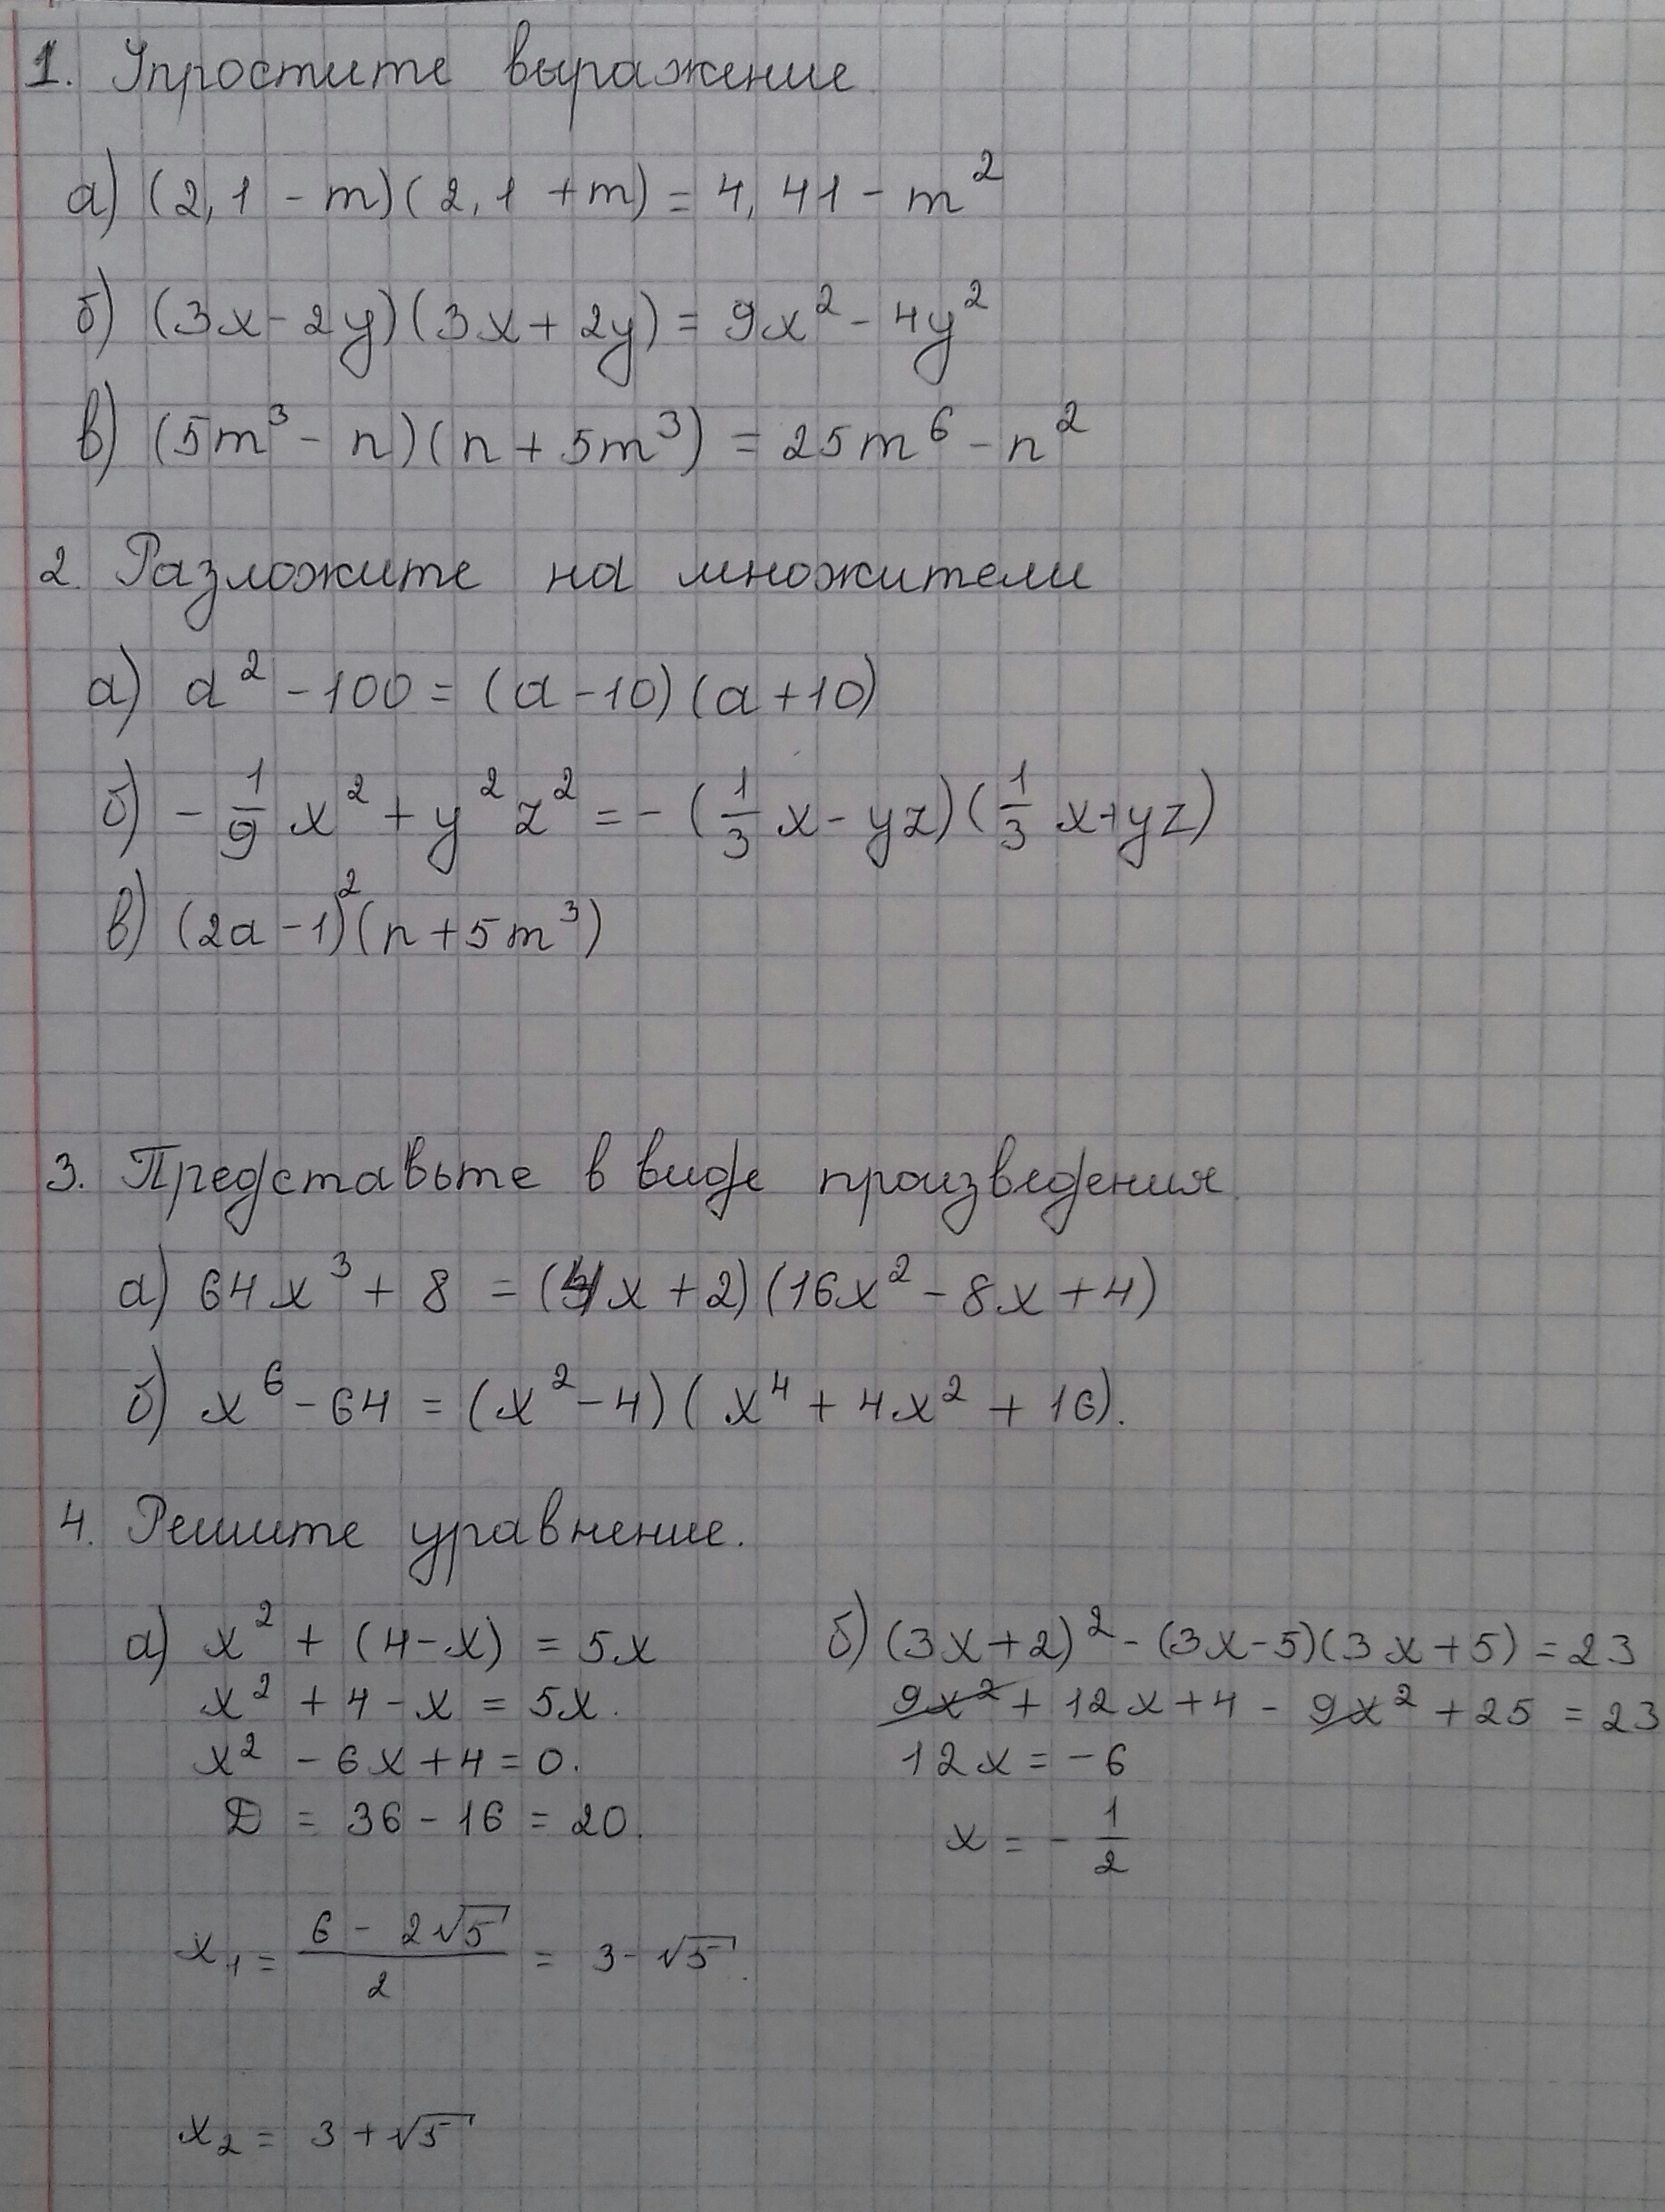 1. Упростите выражение
а) (2,1 - m)(2,1 + m) = 4,41 - m²
б) (3x - 2y)(3x + 2y) = 9x² - 4y²
в) (5m³ - n)(n + 5m³) = 25m⁶ - n²
2. Разложите на множители
а) a² - 100 = (a - 10)(a + 10)
б) - 1/9 x² + y² z² = - (1/3 x - yz)(1/3 x + yz)
в) (2a - 1)² (n + 5m³)
3. Представьте в виде произведения.
а) 64x³ + 8 = (4x + 2)(16x² - 8x + 4)
б) x⁶ - 64 = (x² - 4)(x⁴ + 4x² + 16).
4. Решите уравнение.
а) x² + (4 - x) = 5x
x² + 4 - x = 5x.
x² - 6x + 4 = 0.
D = 36 - 16 = 20.
x₁ = (6 - 2√5)/2 = 3 - √5.
x₂ = 3 + √5
б) (3x + 2)² - (3x - 5)(3x + 5) = 23
9x² + 12x + 4 - 9x² + 25 = 23
12x = -6
x = - 1/2